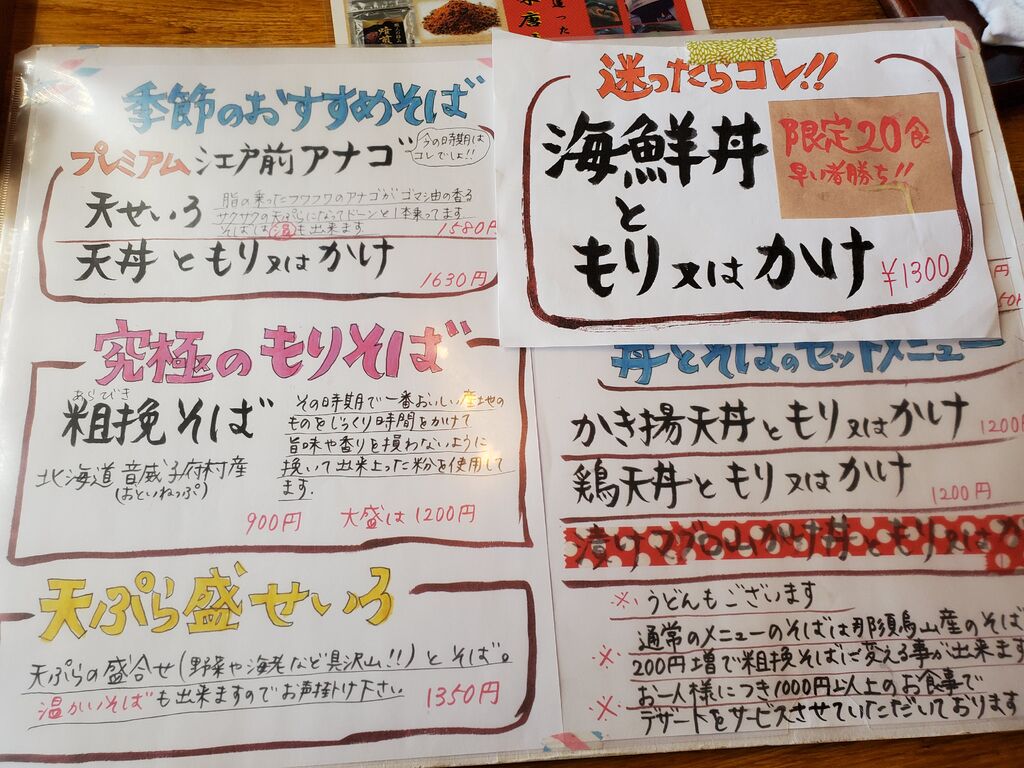 季節のおすすめそば
プレミアム 江戸前アナゴ
今の時期は
コレでしょ!!
天せいろ
脂の乗ったフワフワのアナゴがゴマ油の香る
サクサクの天ぷらになってドーンと1本乗ってます
そばは温も出来ます
1580円
天丼ともり又はかけ
1630円
究極のもりそば
あらびき
粗挽そば
北海道音威子府村産
(おといねっぷ)
その時期で一番おいしい産地の
ものをじっくり時間をかけて
旨味や香りを損わないように
挽いて出来上った粉を使用して
ます.
900円 大盛は1200円
天ぷら盛せいろ
天ぷらの盛合せ(野菜や海老など具沢山!!)とそば。
温かいそばも出来ますのでお声掛け下さい
1350円
迷ったらコレ!!
海鮮丼
と
もり又はかけ
限定20食
早い者勝ち!!
¥1300
丼とそばのセットメニュー
かき揚天丼ともり又はかけ
1200円
鶏天丼ともり又はかけ
1200円
漬けマグロ山かけ丼ともり又はか
※ うどんもございます
※ 通常のメニューのそばは那須烏山産のそば
200円増で粗挽そばに変える事が出来ます
※ お一人様につき1000円以上のお食事で
デザートをサービスさせていただいております